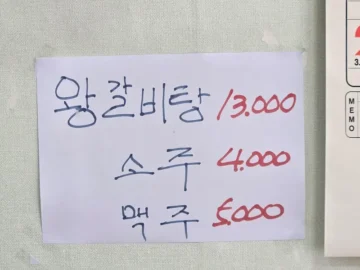 왕갈비탕 13.000
소주 4.000
맥주 5.000
MEMO